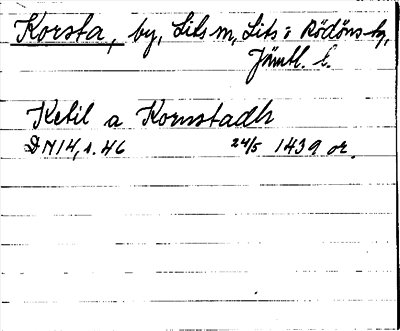 Korsta, by, Lits m, Lits o Rödöns tg,
Jämtl. l.
Ketil a Kornstadh
DN14, s. 46 24/5 1439 or.